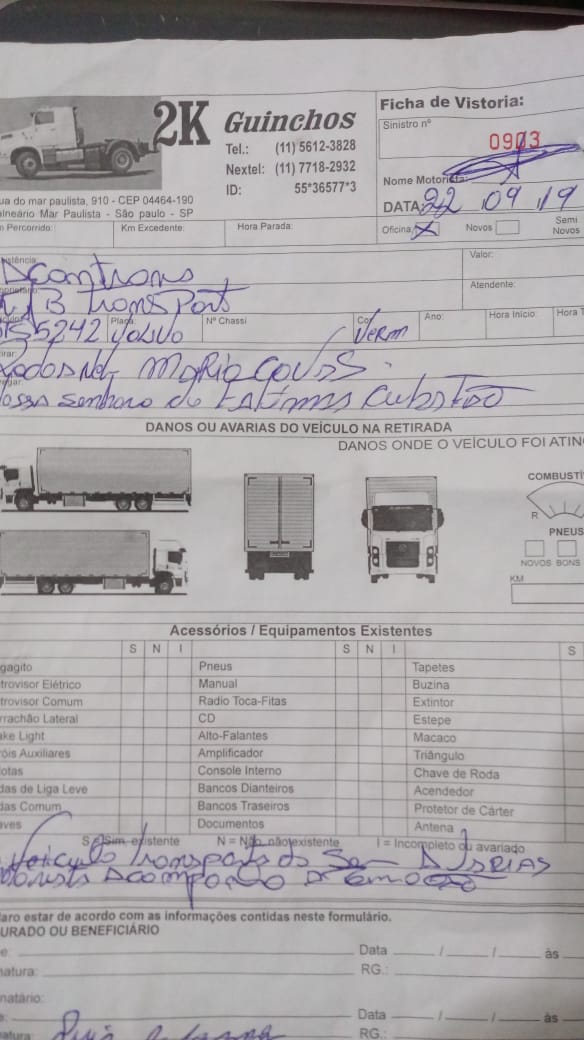 2K Guinchos
Tel.: (11) 5612-3828
Nextel: (11) 7718-2932
ID: 55*36577*3
ua do mar paulista, 910 - CEP 04464-190
alneário Mar Paulista - São paulo - SP
Ficha de Vistoria:
Sinistro nº
0903
Nome Motorista:
DATA: 22 09 19
Percorrido: Km Excedente: Hora Parada: Oficina X Novos Semi Novos
istência: Valor:
Atendente:
B Transport
5242 Placa: Volvo Nº Chassi Cor Verm Ano: Hora Início: Hora T
irar:
Maria Covas.
egar:
ossa senhora de Fatima Cubatão
DANOS OU AVARIAS DO VEÍCULO NA RETIRADA
DANOS ONDE O VEÍCULO FOI ATIN
COMBUSTÍ
R
PNEUS
NOVOS BONS
KM
Acessórios / Equipamentos Existentes
S N I S N I S
gagito Pneus Tapetes
trovisor Elétrico Manual Buzina
trovisor Comum Radio Toca-Fitas Extintor
rrachão Lateral CD Estepe
ake Light Alto-Falantes Macaco
óis Auxiliares Amplificador Triângulo
otas Console Interno Chave de Roda
das de Liga Leve Bancos Dianteiros Acendedor
das Comum Bancos Traseiros Protetor de Cárter
aves Documentos Antena
S = Sim, existente N = Não, não existente I = Incompleto ou avariado
Veiculo Transportado Sem AVARIAS
aro estar de acordo com as informações contidas neste formulário.
URADO OU BENEFICIÁRIO
e: Data / / às
natura: RG.:
natário:
e: Data / / às
atura: RG.: